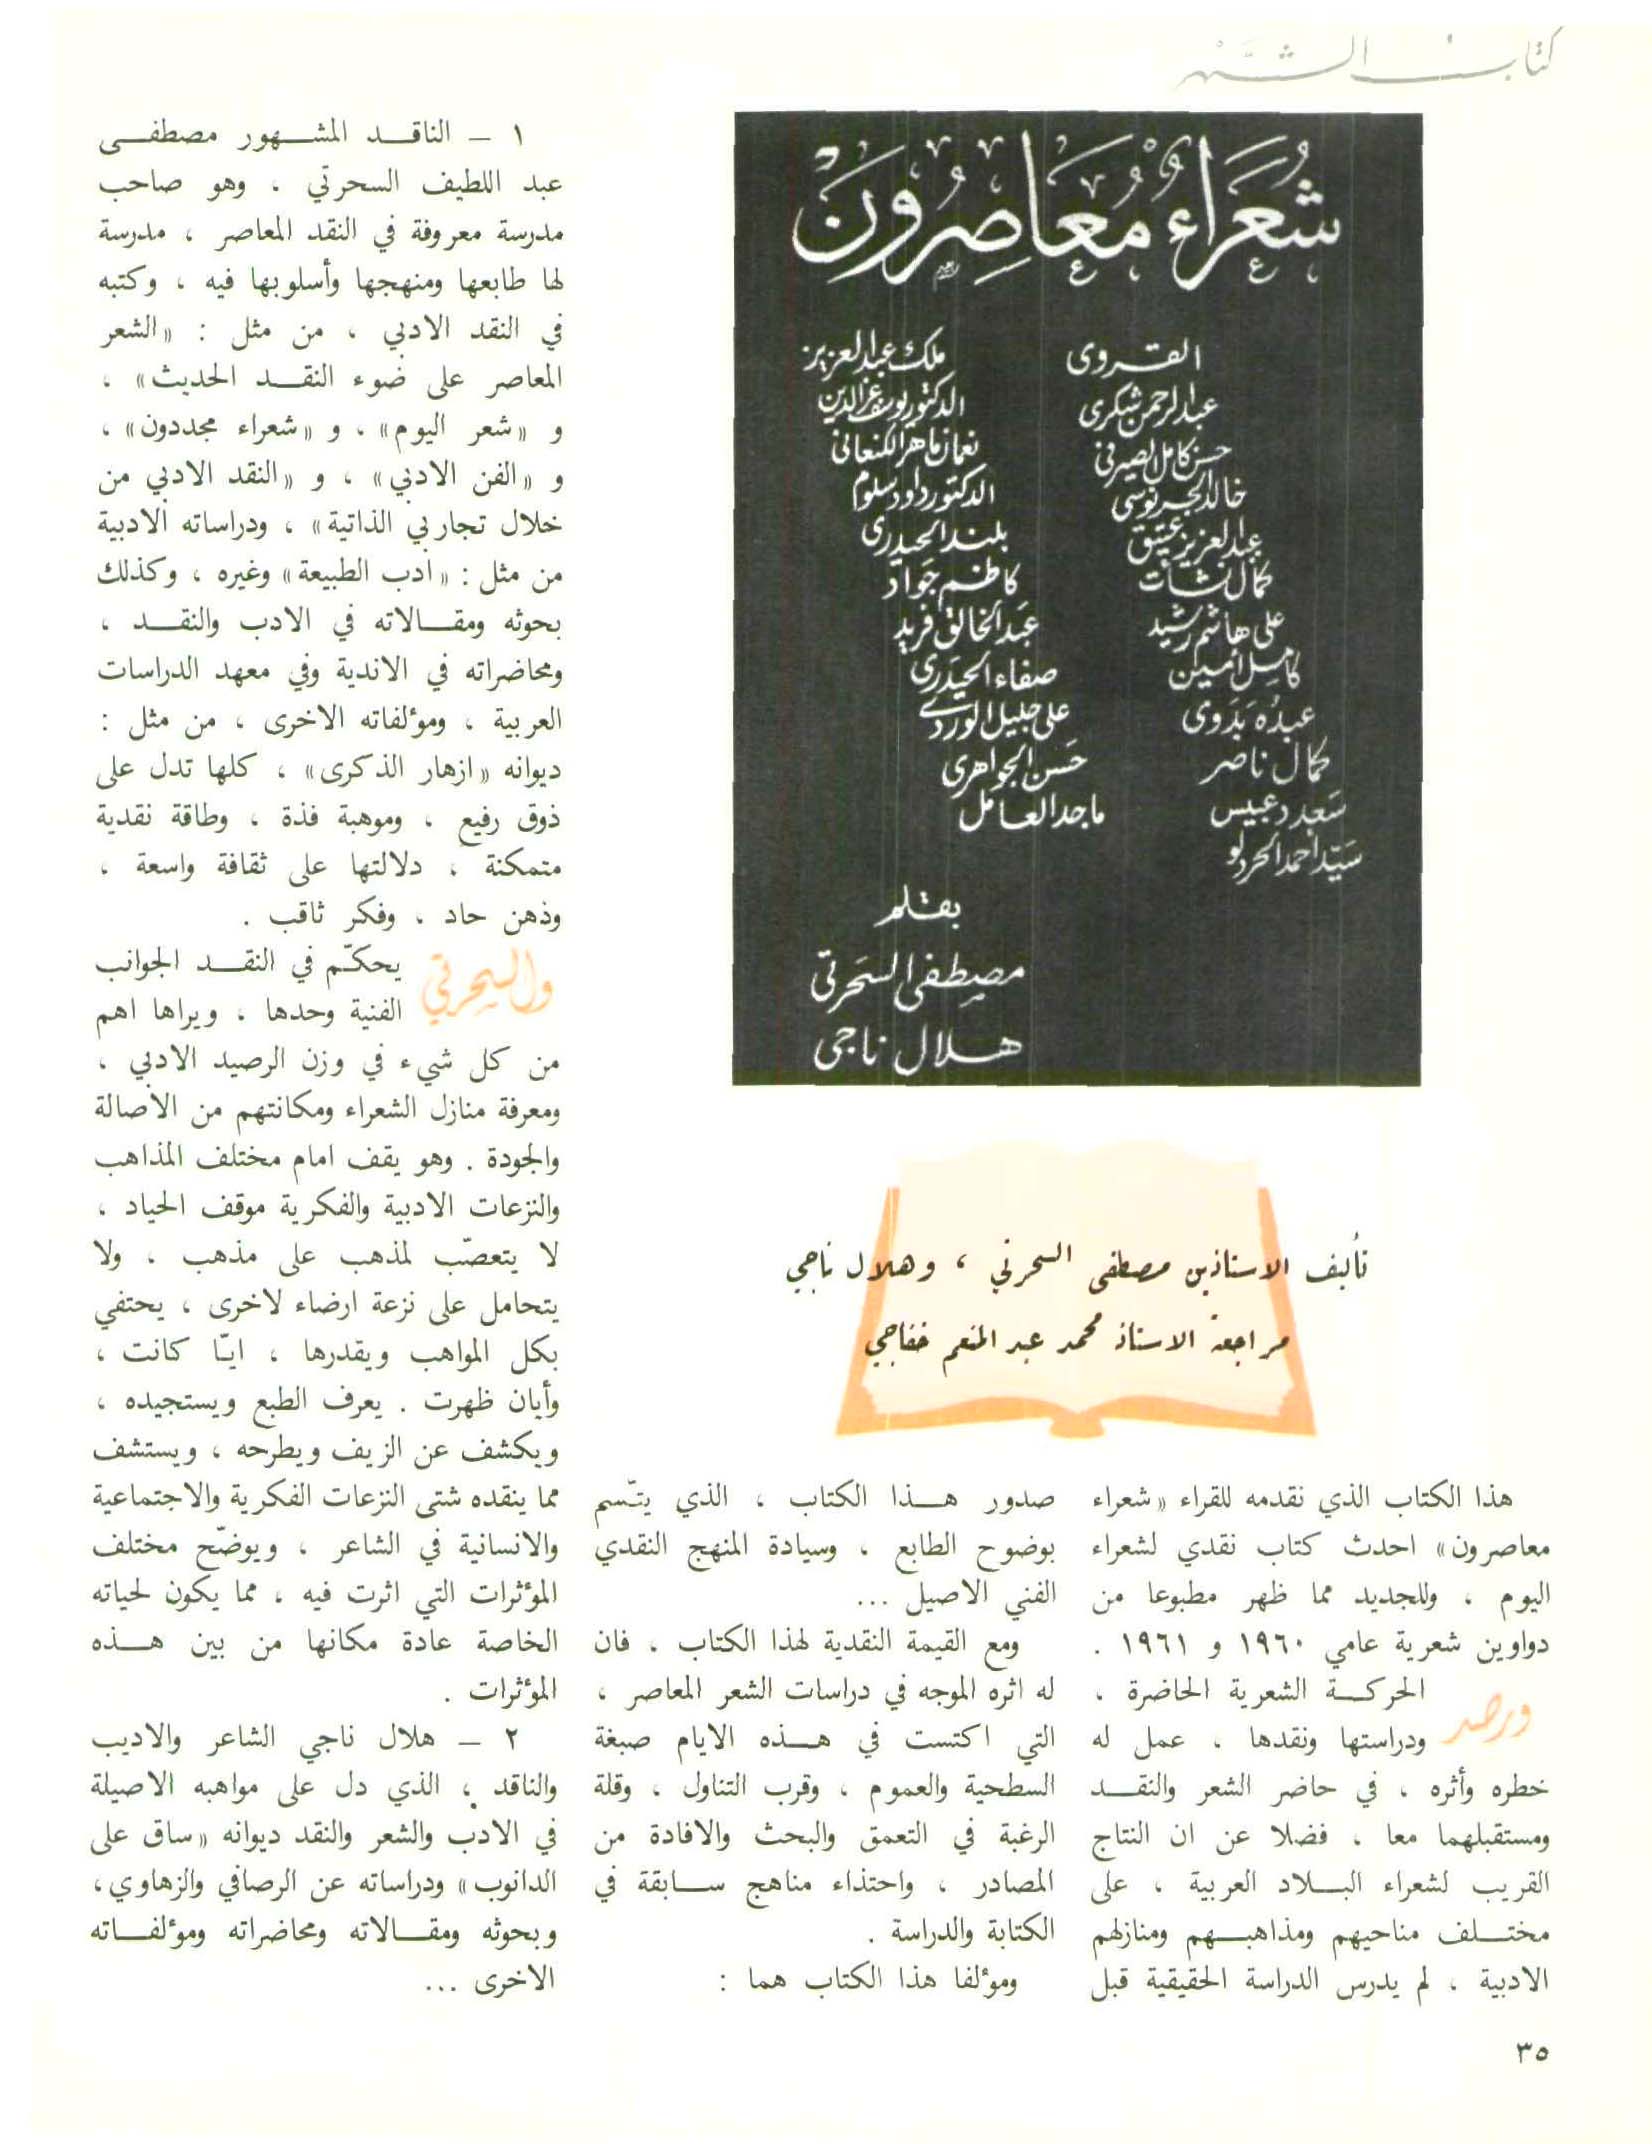 كتاب الشهر
شُعَراءُ مُعَاصِرُونَ
القروى
عبدالرحمن شكرى
حسن كامل الصيرفى
خالد الجرنوسى
عبدالعزيز عتيق
كمال نشأت
على هاشم رشيد
كامل أمين
عبده بدوى
كمال ناصر
سعد دعبيس
سيد أحمد الحردلو
ملك عبدالعزيز
الدكتور يوسف عز الدين
نعمان ماهر الكنعانى
الدكتور داود سلوم
بلند الحيدرى
كاظم جواد
عبد الخالق فريد
صفاء الحيدرى
على جليل الوردى
حسن الجواهرى
ماجد العامل
بقلم
مصطفى السحرتى
هلال ناجى
تأليف الاستاذين مصطفى السحرتي ، وهلال ناجي
مراجعة الاستاذ محمد عبد المنعم خفاجي
هذا الكتاب الذي نقدمه للقراء «شعراء
معاصرون» احدث كتاب نقدي لشعراء
اليوم ، وللجديد مما ظهر مطبوعا من
دواوين شعرية عامي ١٩٦٠ و ١٩٦١ .
ورصد الحركة الشعرية الحاضرة ،
ودراستها ونقدها ، عمل له
خطره وأثره ، في حاضر الشعر والنقد
ومستقبلهما معا ، فضلا عن ان النتاج
القريب لشعراء البلاد العربية ، على
مختلف مناحيهم ومذاهبهم ومنازلهم
الادبية ، لم يدرس الدراسة الحقيقية قبل
صدور هذا الكتاب ، الذي يتّسم
بوضوح الطابع ، وسيادة المنهج النقدي
الفني الاصيل ...
ومع القيمة النقدية لهذا الكتاب ، فان
له اثره الموجه في دراسات الشعر المعاصر ،
التي اكتست في هذه الايام صبغة
السطحية والعموم ، وقرب التناول ، وقلة
الرغبة في التعمق والبحث والافادة من
المصادر ، واحتذاء مناهج سابقة في
الكتابة والدراسة .
ومؤلفا هذا الكتاب هما :
١ ــ الناقد المشهور مصطفى
عبد اللطيف السحرتي ، وهو صاحب
مدرسة معروفة في النقد المعاصر ، مدرسة
لها طابعها ومنهجها وأسلوبها فيه ، وكتبه
في النقد الادبي ، من مثل : «الشعر
المعاصر على ضوء النقد الحديث» ،
و «شعر اليوم» ، و «شعراء مجددون» ،
و «الفن الادبي» ، و «النقد الادبي من
خلال تجاربي الذاتية» ، ودراساته الادبية
من مثل : «ادب الطبيعة» وغيره ، وكذلك
بحوثه ومقالاته في الادب والنقد ،
ومحاضراته في الاندية وفي معهد الدراسات
العربية ، ومؤلفاته الاخرى ، من مثل :
ديوانه «ازهار الذكرى» ، كلها تدل على
ذوق رفيع ، وموهبة فذة ، وطاقة نقدية
متمكنة ، دلالتها على ثقافة واسعة ،
وذهن حاد ، وفكر ثاقب .
والسحرتي يحكّم في النقد الجوانب
الفنية وحدها ، ويراها اهم
من كل شيء في وزن الرصيد الادبي ،
ومعرفة منازل الشعراء ومكانتهم من الاصالة
والجودة . وهو يقف امام مختلف المذاهب
والنزعات الادبية والفكرية موقف الحياد ،
لا يتعصّب لمذهب على مذهب ، ولا
يتحامل على نزعة ارضاء لاخرى ، يحتفي
بكل المواهب ويقدرها ، ايّا كانت ،
وأيان ظهرت . يعرف الطبع ويستجيده ،
ويكشف عن الزيف ويطرحه ، ويستشف
مما ينقده شتى النزعات الفكرية والاجتماعية
والانسانية في الشاعر ، ويوضّح مختلف
المؤثرات التي اثرت فيه ، مما يكون لحياته
الخاصة عادة مكانها من بين هذه
المؤثرات .
٢ ــ هلال ناجي الشاعر والاديب
والناقد ، الذي دل على مواهبه الاصيلة
في الادب والشعر والنقد ديوانه «ساق على
الدانوب» ودراساته عن الرصافي والزهاوي ،
وبحوثه ومقالاته ومحاضراته ومؤلفاته
الاخرى ...
٣٥